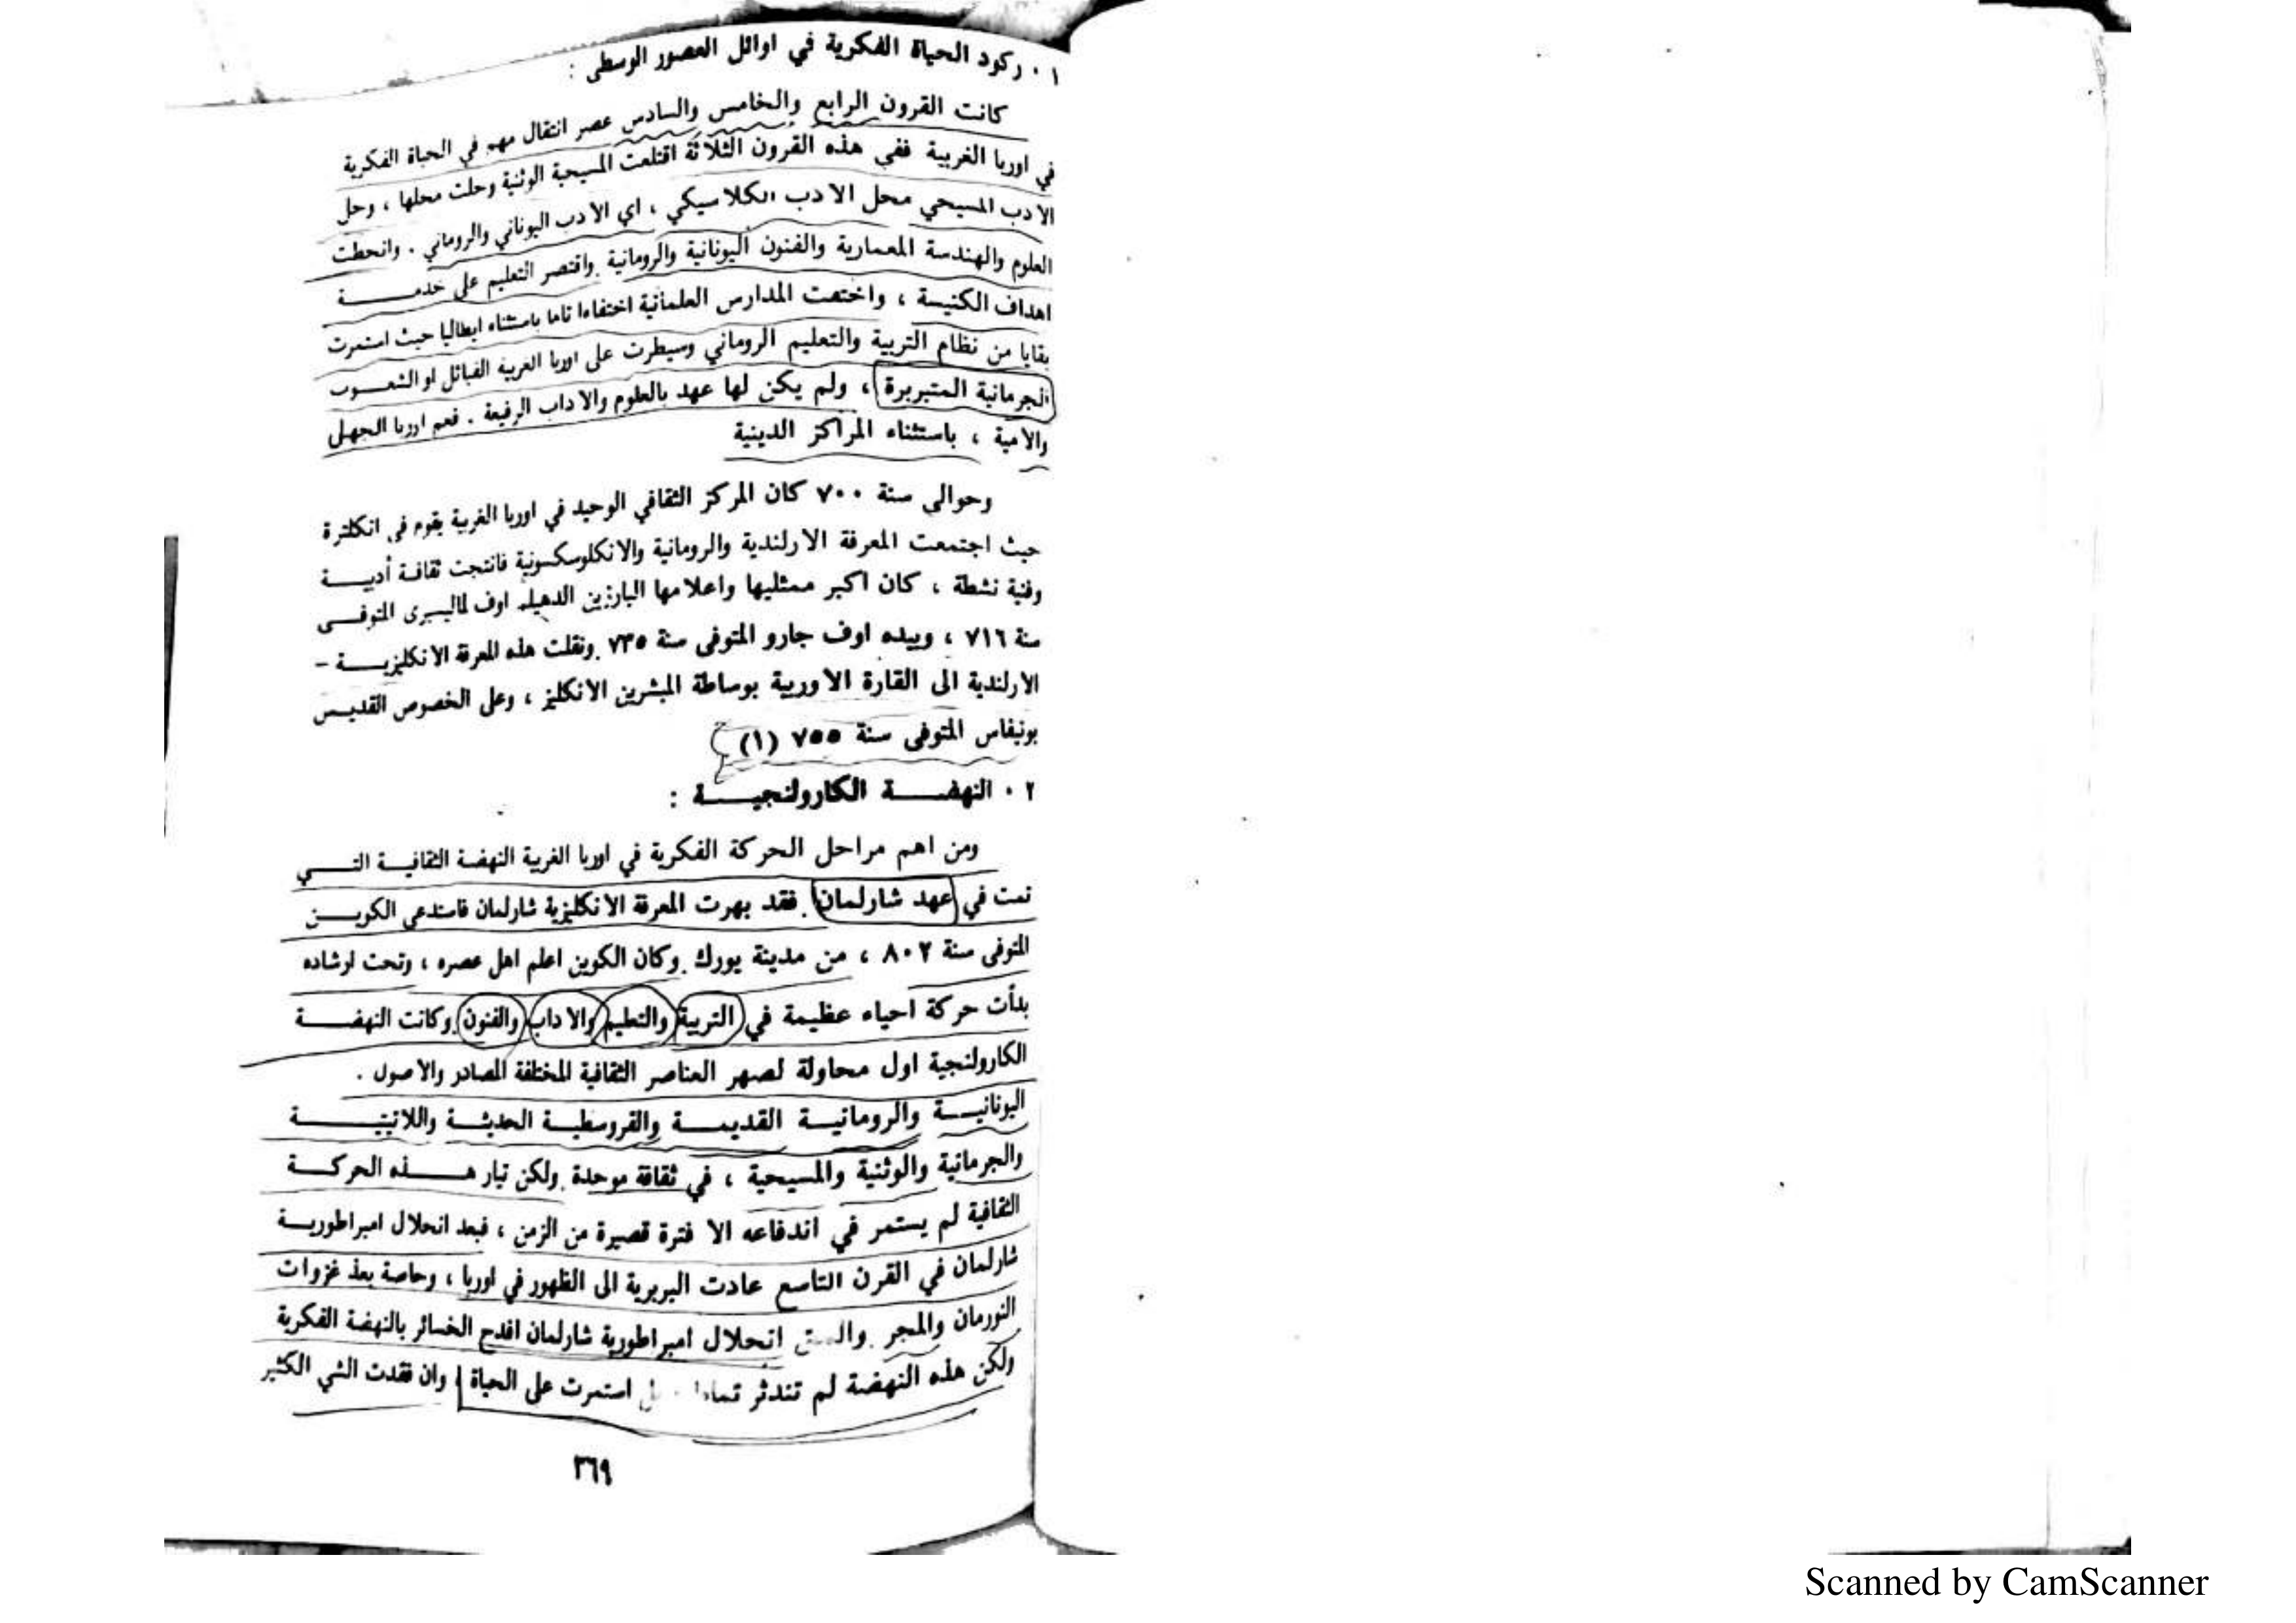 ١ . ركود الحياة الفكرية في اوائل العصور الوسطى :
كانت القرون الرابع والخامس والسادس عصر انتقال مهم في الحياة الفكرية
في اوربا الغربية ففي هذه القرون الثلاثة اقتلعت المسيحية الوثنية وحلت محلها ، وحل
الادب المسيحي محل الادب الكلاسيكي ، اي الادب اليوناني والروماني . وانحطت
العلوم والهندسة المعمارية والفنون اليونانية والرومانية . واقتصر التعليم على خدمـــــة
اهداف الكنيسة ، واختفت المدارس العلمانية اختفاءا تاما باستثناء ايطاليا حيث استمرت
بقايا من نظام التربية والتعليم الروماني وسيطرت على اوربا الغربية القبائل او الشعـــوب
الجرمانية المتبربرة ، ولم يكن لها عهد بالعلوم والاداب الرفيعة . فعم اوربا الجهل
والامية ، باستثناء المراكز الدينية
وحوالي سنة ٧٠٠ كان المركز الثقافي الوحيد في اوربا الغربية يقوم في انكلترة
حيث اجتمعت المعرفة الارلندية والرومانية والانكلوسكسونية فانتجت ثقافة أدبيـــة
وفنية نشطة ، كان اكبر ممثليها واعلامها البارزين الدهيلم اوف لماليبرى المتوفـــى
سنة ٧١٦ ، وبيده اوف جارو المتوفى سنة ٧٣٥ . ونقلت هذه المعرفة الانكليزيـــة –
الارلندية الى القارة الاوربية بوساطة المبشرين الانكليز ، وعلى الخصوص القديـس
بونيفاس المتوفى سنة ٧٥٥ (١)
٢ . النهضـــة الكارولنجيـــة :
ومن اهم مراحل الحركة الفكرية في اوربا الغربية النهضة الثقافيـــة التـــي
تمت في عهد شارلمان . فقد بهرت المعرفة الانكليزية شارلمان فاستدعى الكويـــن
المتوفى سنة ٨٠٢ ، من مدينة يورك . وكان الكوين اعلم اهل عصره ، وتحت ارشاده
بدأت حركة احياء عظيمة في التربية والتعليم والاداب والفنون . وكانت النهضـــة
الكارولنجية اول محاولة لصهر العناصر الثقافية المختلفة المصادر والاصول .
اليونانيـــة والرومانيـــة القديمـــة والقروسطيـــة الحديثـــة واللاتينيـــة
والجرمانية والوثنية والمسيحية ، في ثقافة موحدة . ولكن تيار هـــذه الحركـــة
الثقافية لم يستمر في اندفاعه الا فترة قصيرة من الزمن ، فبعد انحلال امبراطوريـــة
شارلمان في القرن التاسع عادت البربرية الى الظهور في اوربا ، وخاصة بعد غزوات
النورمان والمجر . انحلال امبراطورية شارلمان افدح الخسائر بالنهضة الفكرية
ولكن هذه النهضة لم تندثر تماما بل استمرت على الحياة ، وان فقدت الشي الكثير
٣٦٩
Scanned by CamScanner